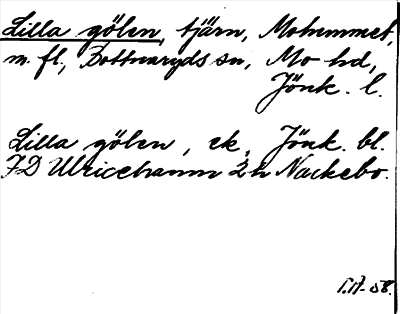 Lilla gölen, tjärn, Mohemmet,
m. fl., Bottnaryds sn, Mo hd,
Jönk. l.
Lilla gölen, ek, Jönk. bl.
7D Ulricehamn 2h Nackebo.